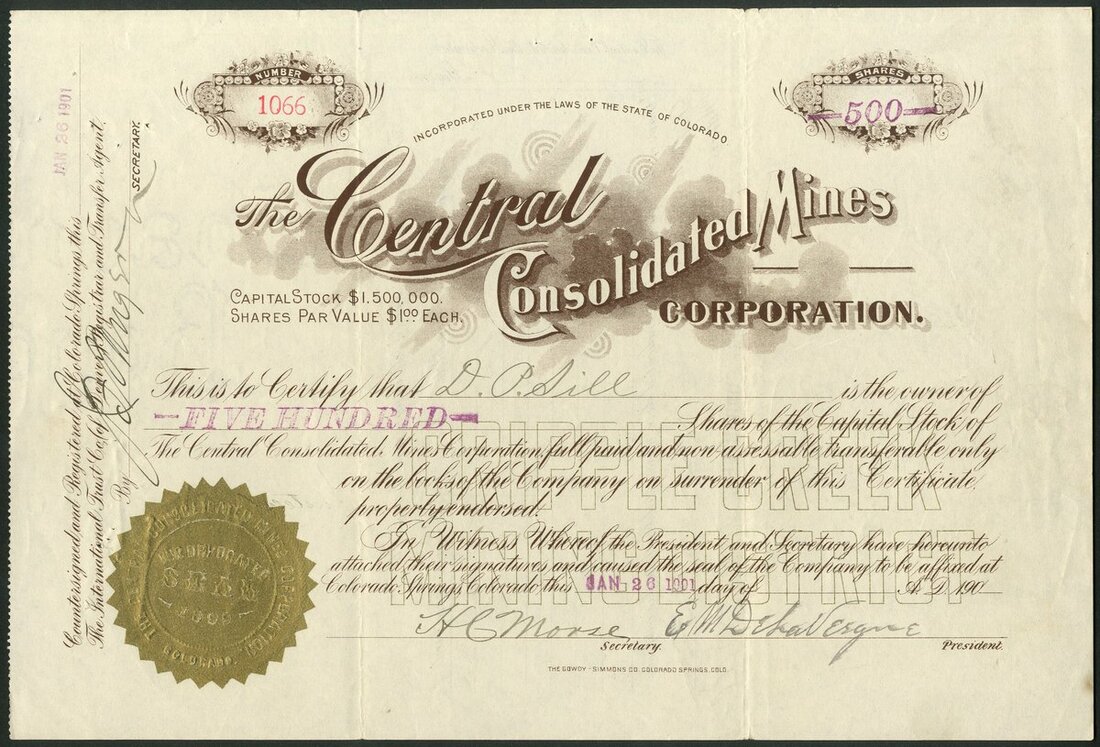 NUMBER
1066
SHARES
500
INCORPORATED UNDER THE LAWS OF THE STATE OF COLORADO
The Central
Consolidated Mines
CORPORATION.
CAPITAL STOCK $1,500,000.
SHARES PAR VALUE $1.00 EACH.
This is to Certify that D. P. Sill is the owner of
FIVE HUNDRED Shares of the Capital Stock of
The Central Consolidated Mines Corporation, full paid and non-assessable transferable only
on the books of the Company on surrender of this Certificate
properly endorsed.
CRIPPLE CREEK
MINING DISTRICT
In Witness Whereof the President and Secretary have hereunto
attached their signatures and caused the seal of the Company to be affixed at
Colorado Springs, Colorado, this JAN 26 1901 day of A.D. 190
H C Morse E M De La Vergne
Secretary. President.
THE GOWDY-SIMMONS CO. COLORADO SPRINGS, COLO.
Countersigned and Registered at Colorado Springs this JAN 26 1901
The International Trust Co. of Denver, Registrar and Transfer Agent.
By SECRETARY.
CONSOLIDATED MINES CORPORATION
INCORPORATED
SEAL
COLORADO.